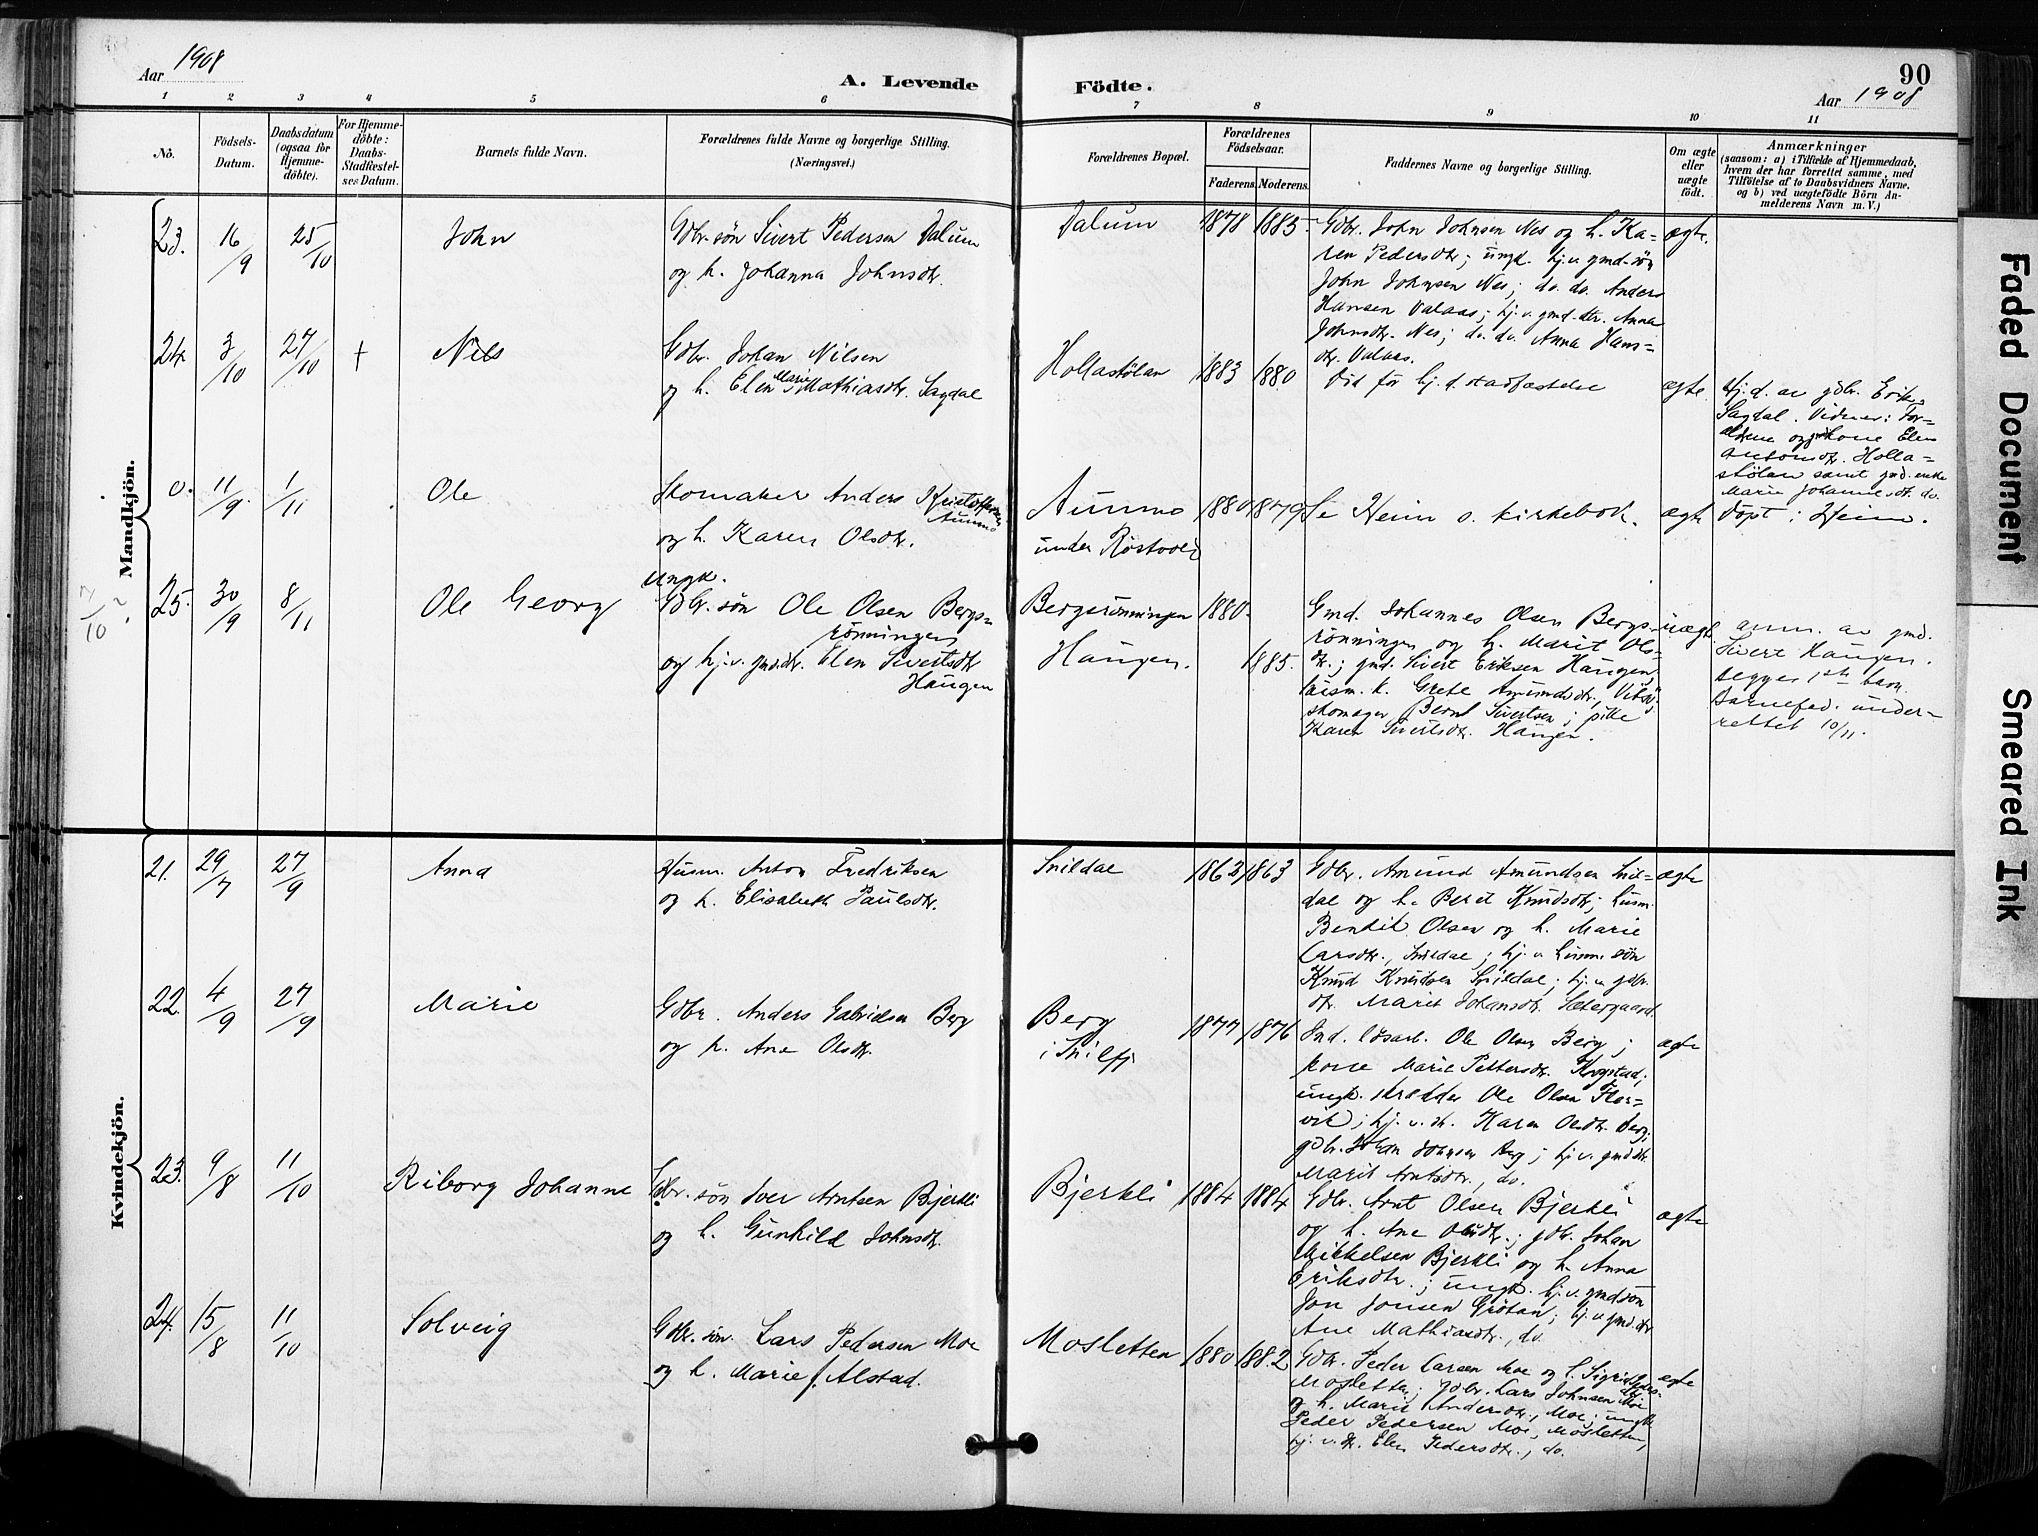 Aar 1908
A. Levende
Födte.
90
Aar 1908
1 2 3 4 5 6 7 8 9 10 11
No.
Födsels-
Datum.
Daabsdatum
(ogsaa for
Hjemme-
döbte).
For Hjemme-
döbte:
Daabs-
Stadfæstel-
ses Datum.
Barnets fulde Navn.
Forældrenes fulde Navne og borgerlige Stilling.
(Næringsvei.)
Forældrenes Bopæl.
Forældrenes
Födselsaar.
Faderens. Moderens.
Faddernes Navne og borgerlige Stilling.
Om ægte
eller
uægte
födt.
Anmærkninger
(saasom: a) i Tilfælde af Hjemmedaab,
hvem der har forrettet samme, med
Tilföielse af to Daabsvidners Navne.
og b) ved uægtefödte Börn An-
melderens Navn m. V.)
Mandkjön.
23. 16/9 25/10 John
Gdbr. søn Sivert Pedersen Dalum
og h. Johanna Johnsdtr.
Dalum 1878 1885
Gdbr. John Johnsen Nes og h. Ka=
ren Pedersdtr; ungk. hj. v. gmd. søn
John Johnsen Nes; do. do. Anders
Hansen Valaas; hj. v. gmd. dtr. Anna
Johnsdtr. Nes; do. do. Anna Hans=
dtr. Valaas.
ægte.
24. 3/10 27/10 + Nils
Gdbr. Johan Nilsen
og h. Elen Marie Mathiasdtr. Sagdal
Hollastølan 1883 1880
Tid for hj. d. stadfæstelse
ægte
Hj. d. av gdbr. Erik
Sagdal. Vidner: For=
ældrene og kone Elen
Antonsdtr. Holla=
stølan samt gmd. enke
Marie Johannesdt. do.
0. 11/9 1/11 Ole
Skomaker Anders Kristoffersen
Aunmo
og h. Karen Olsdtr.
Aunmo 1880 1879
under Røstvold
Se Heim s. kirkebok.
ægte
Døpt i Heim.
7/10 ?
25. 30/9 8/11 Ole Georg
ungk.
Gdbr. søn Ole Olsen Bergs=
rønningen
og hj. v. gmd. dtr. Elen Sivertsdtr
Haugen
Bergsrønningen 1880.
Haugen. 1885.
Gmd. Johannes Olsen Bergs-
rønningen og h. Marit Ols=
dtr.; gmd. Sivert Eriksen Haugen;
husm. k. Grete Amundsdtr,
skomager Bernt Sivertsen; pike
Karen Sivertsdtr. Haugen.
uægte
anm. av gmd.
Sivert Haugen.
begges 1ste barn.
Barnefad. under=
rettet 10/11.
Kvindekjön.
21. 29/7 27/9 Anna
Husm. Anton Fredriksen
og h. Elisabeth Paulsdtr.
Snildal 1862 1863
Gdbr. Amund Amundsen Snil=
dal og h. Beret Knudsdtr; husm.
Bendik Olsen og h. Marie
Larsdtr., Snildal; hj. v. husm. søn
Knud Knudsen Snildal; hj. v. gdbr.
dtr. Marit Johansdtr. Sætergaard
ægte
22. 4/9 27/9 Marie
Gdbr. Anders Gabrielsen Berg
og h. Ane Olsdtr.
Berg
i Snilfj
1877 1876
Ind. løsarb. Ole Olsen Berg;
kone Marie Pettersdtr. Krogstad;
ungk. skrædder Ole Olsen Flor=
vik; hj. v. dtr. Karen Olsdtr. Berg;
gdbr. Johan Johnsen Berg; hj. v. gmd. dtr.
Marit Arntsdtr., do.
ægte
23. 9/8 11/10 Riborg Johanne
Gdbr. søn Iver Arntsen Bjerkli
og h. Gunhild Johnsdtr.
Bjerkli 1884 1884
Gdbr. Arnt Olsen Bjerkli
og h. Ane Olsdtr.; gdbr. Johan
Mikkelsen Bjerkli og h. Anna
Eriksdtr.; ungk. hj. v. gmd. søn
Jon Jonsen Grötan; hj. v. gmd. dtr
Ane Mathiasdtr., do.
ægte
24. 15/8 11/10 Solveig
Gdbr. søn. Lars Pedersen Moe
og h. Marie f. Alstad.
Mosletten 1880 1882
Gdbr. Peder Larsen Moe og h. Sigrid
Mosletten; gdbr. Lars Johnsen Moe
og h. Marit Andersdtr., Moe; ungk.
Peder Pedersen Moe, Mosletten,
hj. v. dt. Elen Pedersdtr., do.
ægte
Faded Document
Smeared Ink